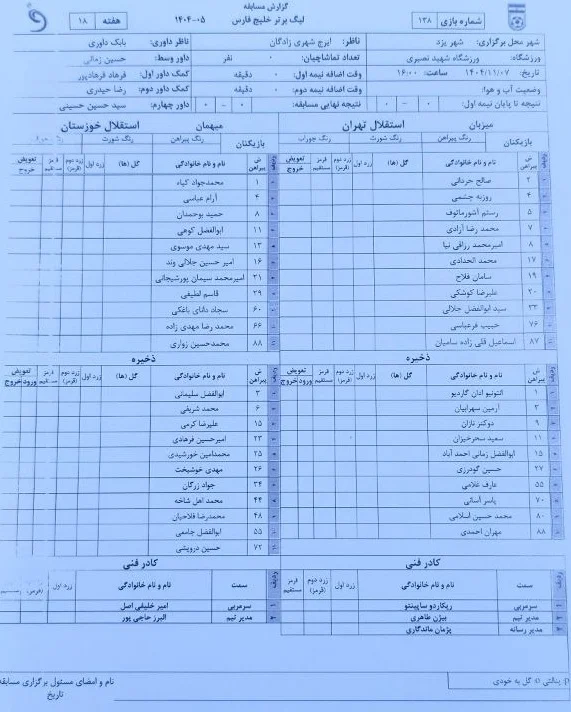 گزارش مسابقه
لیگ برتر خلیج فارس
۱۴۰۴-۰۵
شماره بازی ۱۳۸
هفته ۱۸
شهر محل برگزاری: شهر یزد
ناظر: ایرج شهری زادگان
ناظر داوری: بابک داوری
ورزشگاه: ورزشگاه شهید نصیری
تعداد تماشاچیان: ۰ نفر
داور وسط: حسین زمانی
تاریخ: ۱۴۰۴/۱۱/۰۷ ساعت: ۱۶:۰۰
وقت اضافه نیمه اول: ۰ دقیقه
کمک داور اول: فرهاد فرهادپور
وضعیت آب و هوا:
وقت اضافه نیمه دوم: ۰ دقیقه
کمک داور دوم: رضا حیدری
نتیجه تا پایان نیمه اول: ۰ - ۰
نتیجه نهایی مسابقه: ۰ - ۰
داور چهارم: سید حسین حسینی
میزبان استقلال تهران
بازیکنان رنگ پیراهن رنگ شورت رنگ جوراب
ردیف ش پیراهن نام و نام خانوادگی گل (ها) زرد اول زرد دوم (قرمز) قرمز مستقیم تعویض خروج
۲ صالح حردانی
۴ روزبه چشمی
۵ رستم آشورماتوف
۷ محمد رضا آزادی
۸ امیرمحمد رزاقی نیا
۱۷ محمد الحدادی
۱۹ سامان فلاح
۲۰ علیرضا کوشکی
۳۳ سید ابوالفضل جلالی
۷۶ حبیب فرعباسی
۸۷ اسماعیل قلی زاده سامیان
ذخیره
ردیف ش پیراهن نام و نام خانوادگی گل (ها) زرد اول زرد دوم (قرمز) قرمز مستقیم تعویض ورود خروج
۱ آنتونیو آدان گاردیو
۳ آرمین سهرابیان
۹ دوکنز نازان
۱۱ سعید سحرخیزان
۱۵ ابوالفضل زمانی احمد آباد
۲۷ حسین گودرزی
۵۵ عارف غلامی
۷۰ یاسر آسانی
۸۰ محمد حسین اسلامی
۸۸ مهران احمدی
کادر فنی
ردیف سمت نام و نام خانوادگی زرد اول زرد دوم (قرمز) قرمز مستقیم
۱ سرمربی ریکاردو ساپینتو
۲ مدیر تیم بیژن طاهری
۳ مدیر رسانه پژمان ماندگاری
میهمان استقلال خوزستان
بازیکنان رنگ پیراهن رنگ شورت
ردیف ش پیراهن نام و نام خانوادگی گل (ها) زرد اول زرد دوم (قرمز) تعویض خروج
۱ محمدجواد کیاه
۴ آرام عباسی
۸ حمید بوحمدان
۱۱ ابوالفضل کوهی
۱۳ سید مهدی موسوی
۱۶ امیر حسین جلالی وند
۲۱ امیرمحمد سیمان پورشیجانی
۲۹ قاسم لطیفی
۶۰ سجاد دانای باغکی
۶۶ محمد رضا مهدی زاده
۸۸ محمدحسین زواری
ذخیره
ردیف ش پیراهن نام و نام خانوادگی گل (ها) زرد اول زرد دوم (قرمز) قرمز مستقیم تعویض ورود خروج
۳ ابوالفضل سلیمانی
۶ محمد شریفی
۱۵ علیرضا کرمی
۲۳ امیرحسین فرهادی
۲۵ محمدامین خورشیدی
۲۶ مهدی خوشبخت
۳۴ جواد زرگان
۴۴ محمد اهل شاخه
۴۸ محمدرضا فلاحیان
۵۵ ابوالفضل جامعی
۷۲ حسین درویشی
کادر فنی
ردیف سمت نام و نام خانوادگی زرد اول
۱ سرمربی امیر خلیفی اصل
۲ مدیر تیم البرز حاجی پور
پنالتی G: گل به خودی
نام و امضای مسئول برگزاری مسابقه
تاریخ